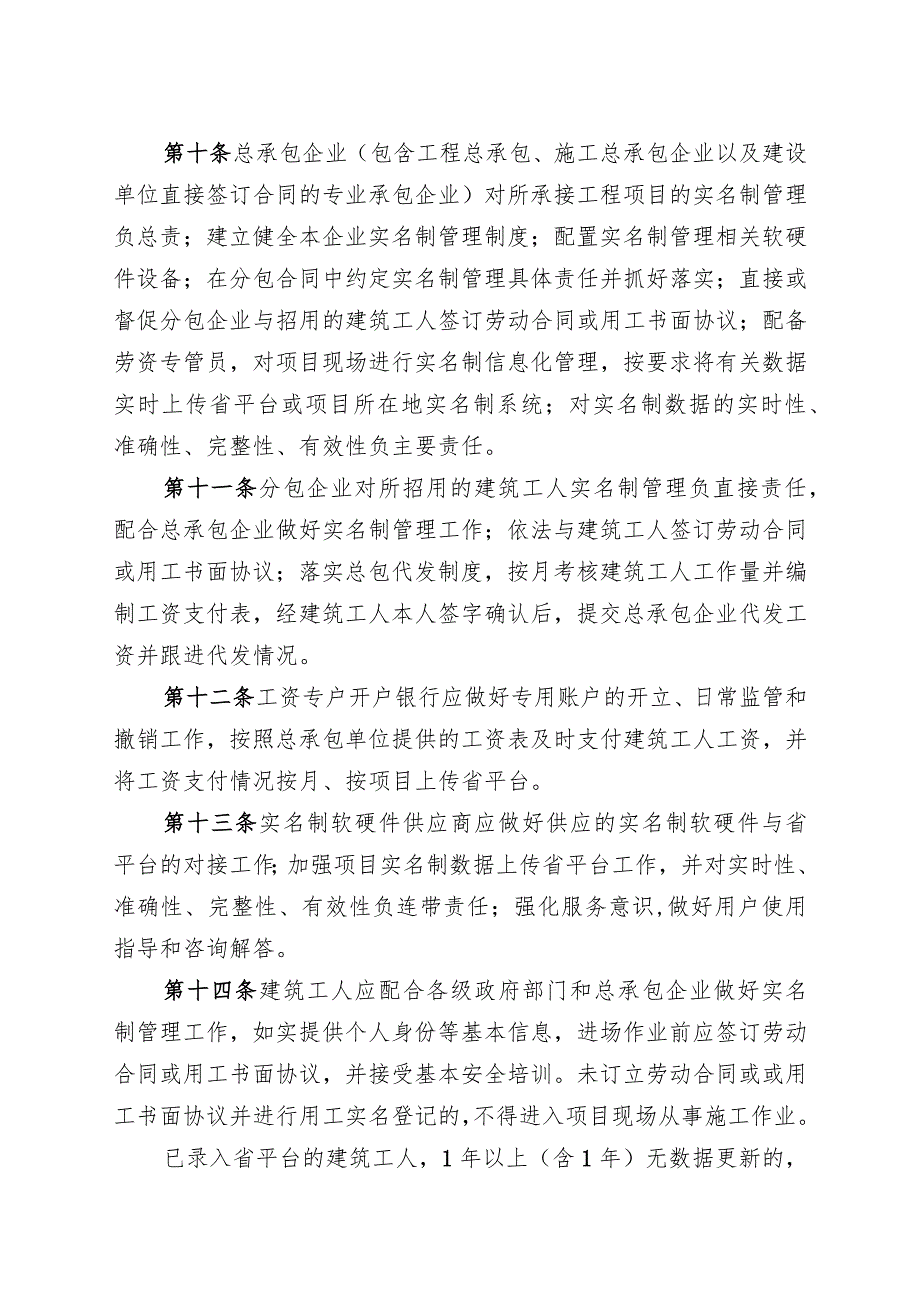 第十条总承包企业（包含工程总承包、施工总承包企业以及建设
单位直接签订合同的专业承包企业）对所承接工程项目的实名制管理
负总责；建立健全本企业实名制管理制度；配置实名制管理相关软硬
件设备；在分包合同中约定实名制管理具体责任并抓好落实；直接或
督促分包企业与招用的建筑工人签订劳动合同或用工书面协议；配备
劳资专管员，对项目现场进行实名制信息化管理，按要求将有关数据
实时上传省平台或项目所在地实名制系统；对实名制数据的实时性、
准确性、完整性、有效性负主要责任。
第十一条分包企业对所招用的建筑工人实名制管理负直接责任，
配合总承包企业做好实名制管理工作；依法与建筑工人签订劳动合同
或用工书面协议；落实总包代发制度，按月考核建筑工人工作量并编
制工资支付表，经建筑工人本人签字确认后，提交总承包企业代发工
资并跟进代发情况。
第十二条工资专户开户银行应做好专用账户的开立、日常监管和
撤销工作，按照总承包单位提供的工资表及时支付建筑工人工资，并
将工资支付情况按月、按项目上传省平台。
第十三条实名制软硬件供应商应做好供应的实名制软硬件与省
平台的对接工作；加强项目实名制数据上传省平台工作，并对实时性、
准确性、完整性、有效性负连带责任；强化服务意识,做好用户使用
指导和咨询解答。
第十四条建筑工人应配合各级政府部门和总承包企业做好实名
制管理工作，如实提供个人身份等基本信息，进场作业前应签订劳动
合同或用工书面协议，并接受基本安全培训。未订立劳动合同或或用
工书面协议并进行用工实名登记的,不得进入项目现场从事施工作业。
已录入省平台的建筑工人，1 年以上（含 1 年）无数据更新的，